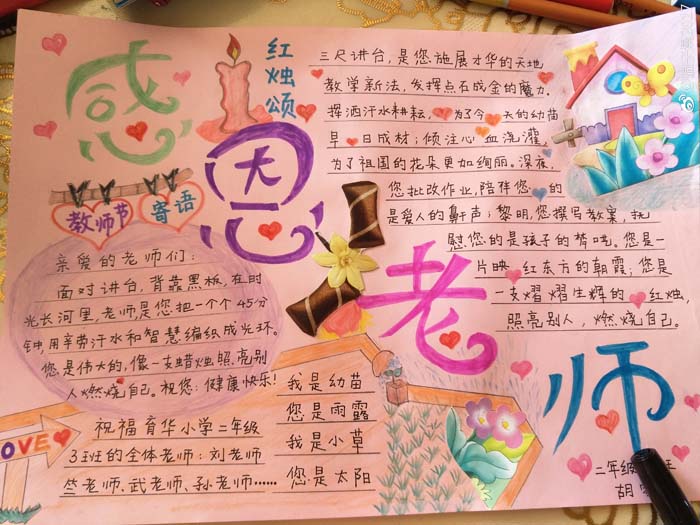 感恩老师
红烛颂
三尺讲台，是您施展才华的天地
教学新法，发挥点石成金的魔力。
挥洒汗水耕耘，为了今天的幼苗
早日成材；倾注心血浇灌，
为了祖国的花朵更加绚丽。深夜，
您批改作业，陪伴您的
是爱人的鼾声；黎明，您撰写教案，抚
慰您的是孩子的梦呓。您是一
片映红东方的朝霞；您是
一支熠熠生辉的红烛，
照亮别人，燃烧自己。
教师节寄语
亲爱的老师们：
面对讲台，背靠黑板，在时
光长河里，老师，是您把一个个45分
钟，用辛劳汗水和智慧编织成光环。
您是伟大的，像一支蜡烛照亮别
人燃烧自己。祝您：健康快乐！
LOVE
祝福育华小学二年级
3班的全体老师：刘老师
老师、武老师、孙老师……
我是幼苗
您是雨露
我是小草
您是太阳
二年级
胡